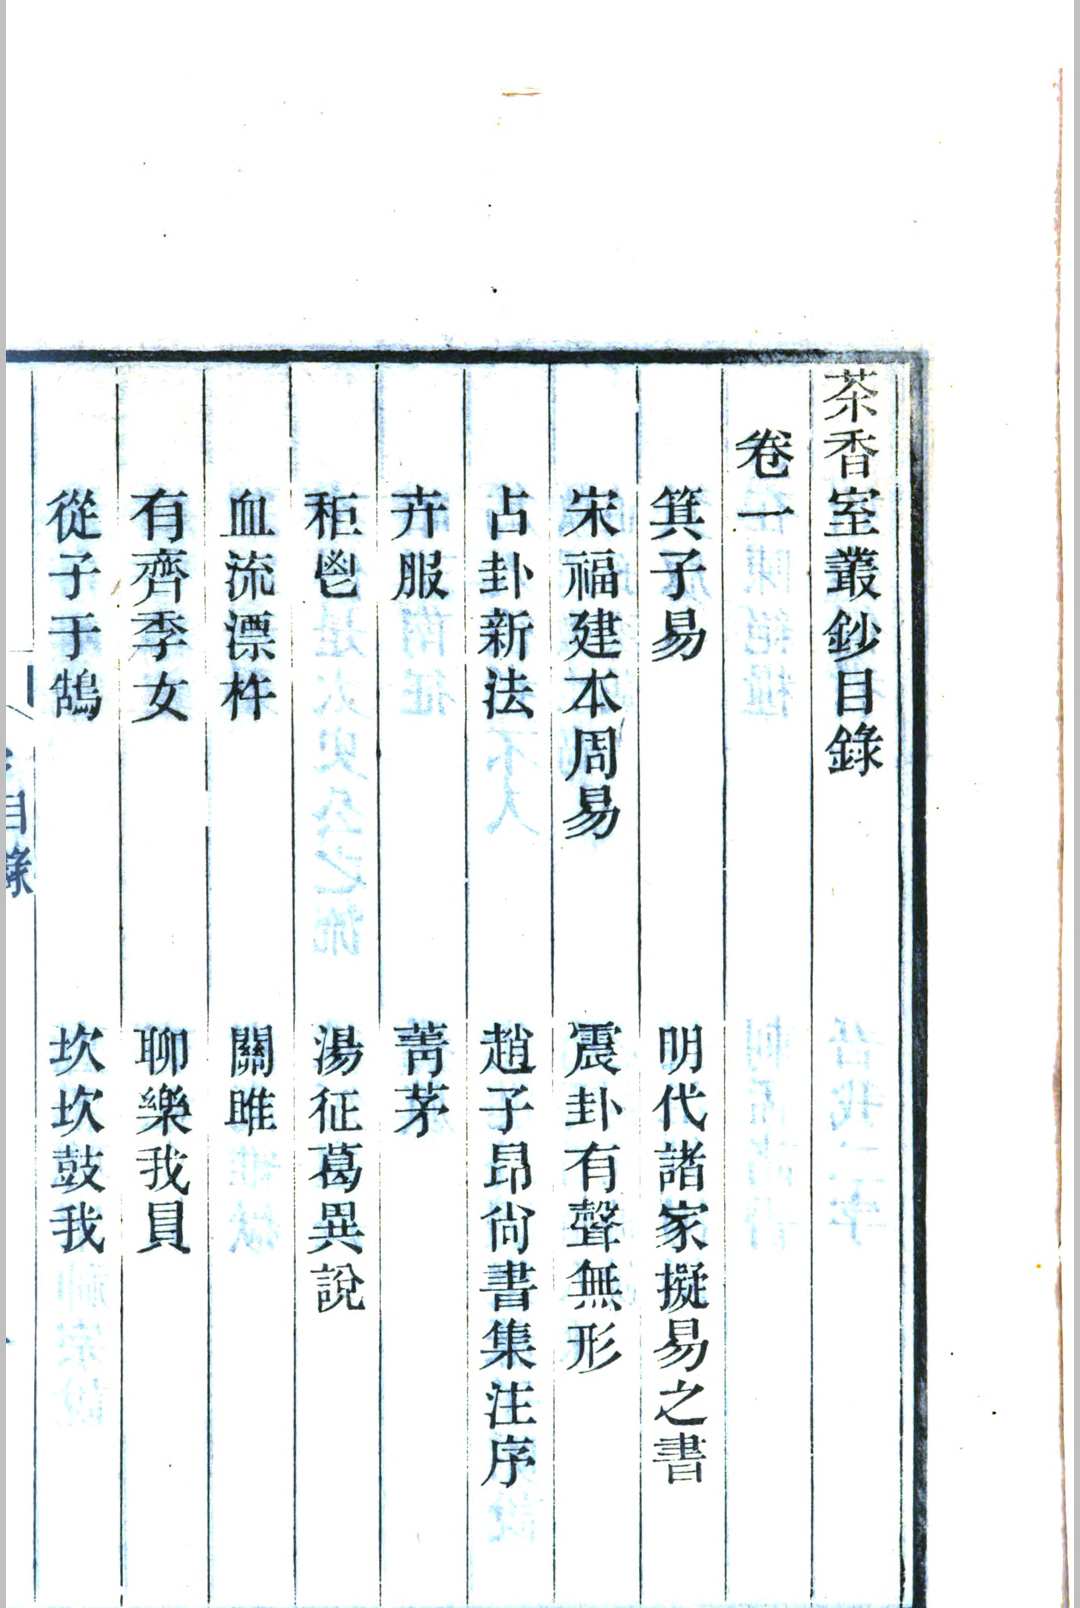 茶香室叢鈔目錄
卷一
箕子易　明代諸家擬易之書
宋福建本周易　震卦有聲無形
占卦新法　趙子昂尙書集注序
卉服　菁茅
秬鬯　湯征葛異說
血流漂杵　關雎
有齊季女　聊樂我員
從子于鵠　坎坎鼓我
目錄